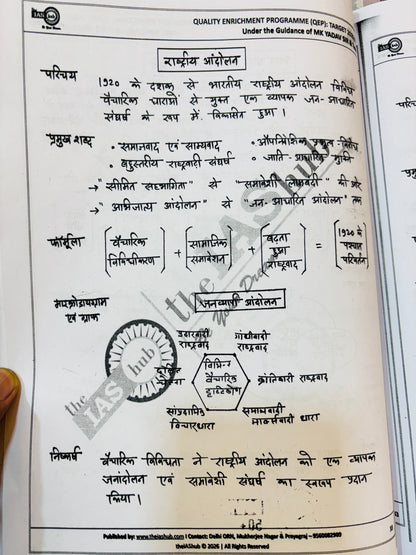 the
IAS
hub
QUALITY ENRICHMENT PROGRAMME (QEP): TARGET
Under the Guidance of MK YADAV SIR &
राष्ट्रीय आंदोलन
परिचय
1920 के दशक से भारतीय राष्ट्रीय आंदोलन विविध
वैचारिक धाराओं से युक्त एक व्यापक जन-आधारित
संघर्ष के रूप में विकसित हुआ।
प्रमुख शब्द
• समाजवाद एवं साम्यवाद
• औपनिवेशिक प्रभुत्व विरोध
• बहुस्तरीय राष्ट्रवादी संघर्ष
• जाति-आधारित मुक्ति
→ "सीमित सहभागिता" से "समावेशी" की ओर
→ "आभिजात्य आंदोलन" से "जन-आधारित आंदोलन" तक
फॉर्मूला
[वैचारिक विविधीकरण] + [सामाजिक समावेशन] + [बढ़ता हुआ राष्ट्रवाद] = [1920 के पश्चात परिवर्तन]
माइक्रोडायग्राम
एवं ग्राफ
जनव्यापी आंदोलन
उदारवादी
राष्ट्रवाद
गांधीवादी
राष्ट्रवाद
दलित
विभिन्न
वैचारिक
दृष्टिकोण
क्रांतिकारी राष्ट्रवाद
सांप्रदायिक
विचारधारा
समाजवादी
मार्क्सवादी धारा
the
IAS hub
निष्कर्ष
वैचारिक विविधता ने राष्ट्रीय आंदोलन को एक व्यापक
जनांदोलन एवं समावेशी संघर्ष का स्वरूप प्रदान
किया।
Published by: www.theiashub.com I Contact: Delhi ORN, Mukherjee Nagar & Prayagraj – 9560982909
theIAShub © 2026 | All Rights Reserved